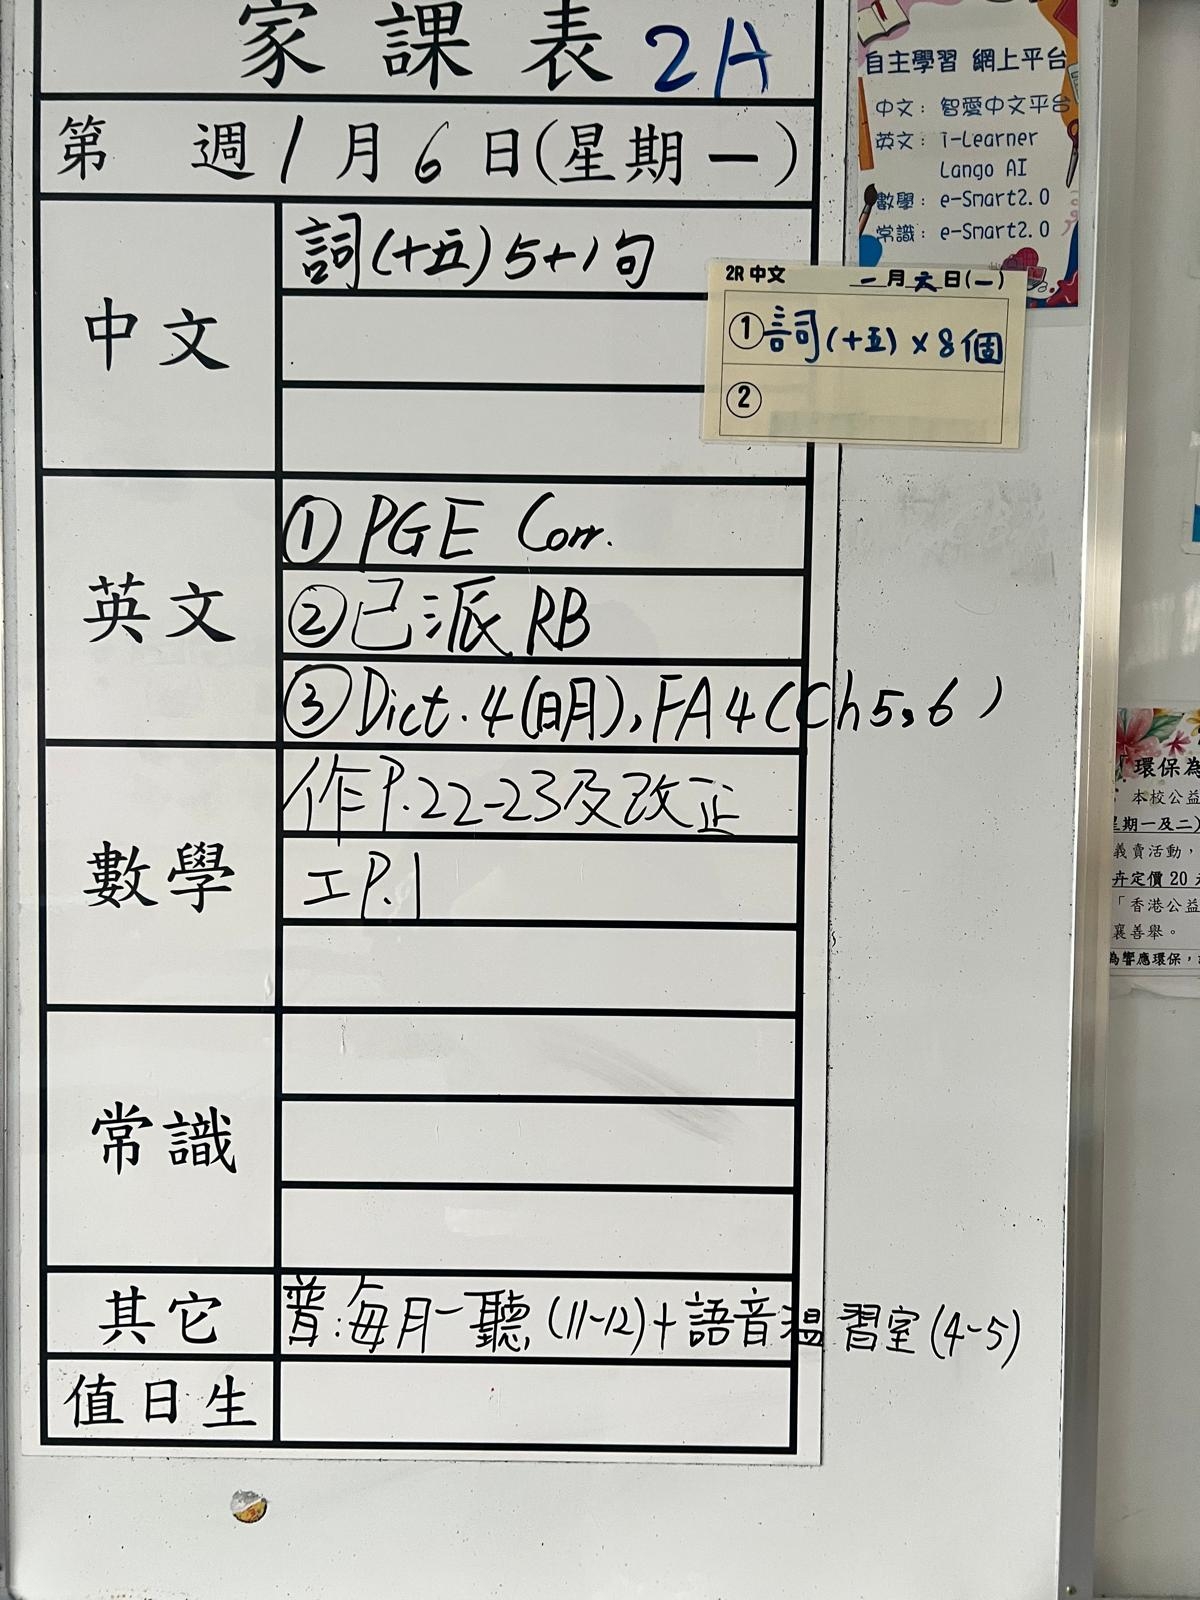 家課表 2A
第 週 1 月 6 日(星期一)
中文
詞(十五) 5+1句
英文
① PGE Corr.
② 已派 RB
③ Dict. 4(明), FA4(Ch5,6)
數學
作P.22-23及改正
工P.1
常識
其它
普:每月一聽(11-12)+語音溫習室(4-5)
值日生
自主學習 網上平台
中文: 智愛中文平台
英文: i-Learner
Lango AI
數學: e-Smart2.0
常識: e-Smart2.0
2R 中文 一月六日(一)
① 詞(十五)×8個
②
「環保為
本校公益
星期一及二)
義賣活動,
卉定價 20 元
「香港公益
襄善舉。
為響應環保,